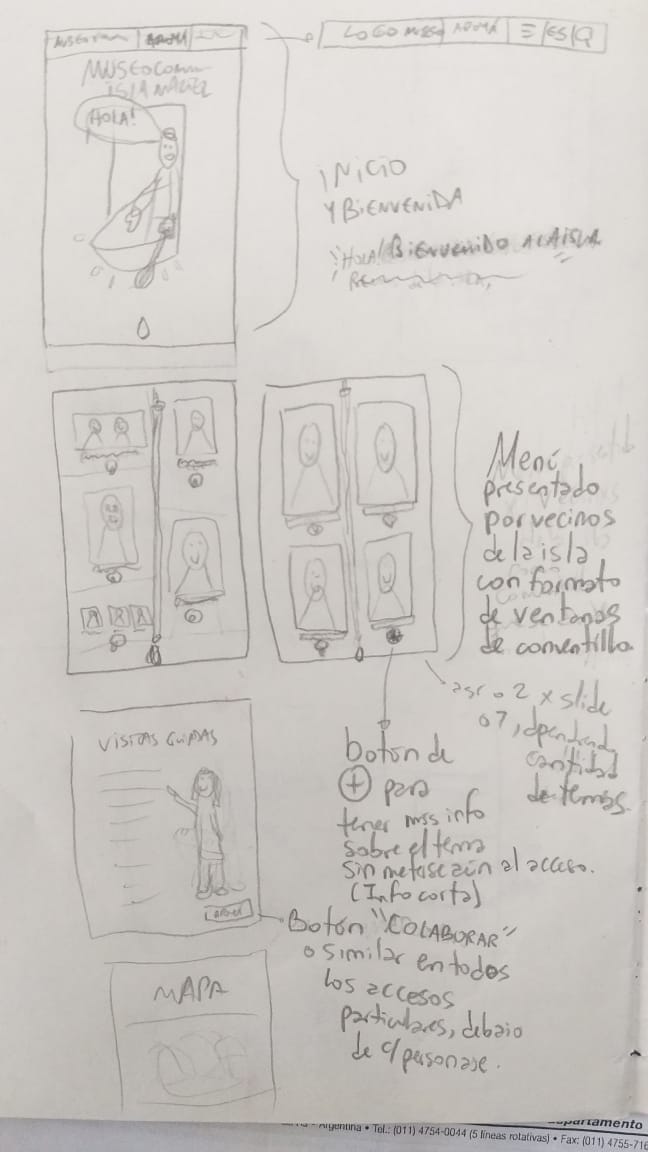 MUSEO
APOYÁ
LOGO MUSEO APOYÁ ES
MUSEO COMU
ISLA MACIEL
HOLA!
INICIO
Y BIENVENIDA
¡HOLA! BIENVENIDO A LA ISLA
Menú
presentado
por vecinos
de la isla
con formato
de ventanas
de conventillo
o 2 x slide
o 7,
cantidad
de temas.
botón de
+ para
tener mas info
sobre el tema
sin meterse aún al acceso.
(Info corta)
VISITAS GUIADAS
APOYÁ
Botón "COLABORAR"
o similar en todos
los accesos
particulares, debajo
de c/personaje.
MAPA
Departamento
Argentina • Tel.: (011) 4754-0044 (5 líneas rotativas) • Fax: (011) 4755-716